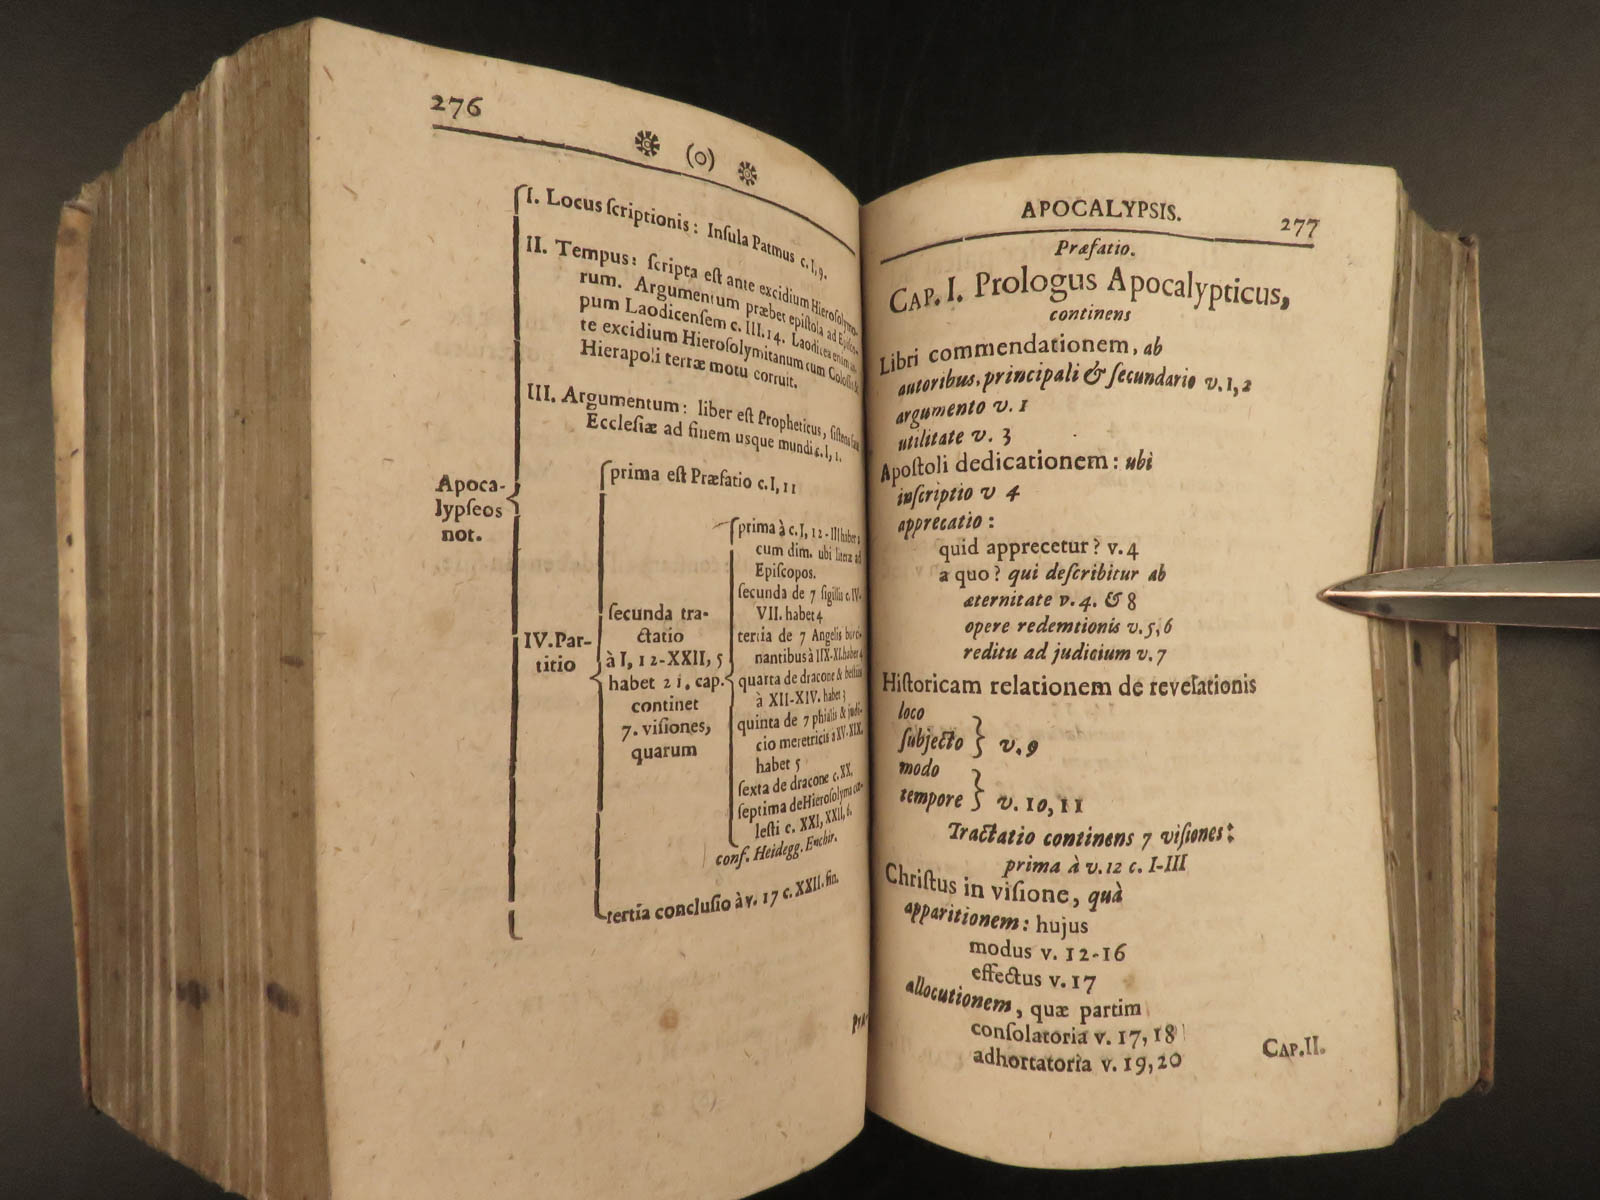 276
(o)
I. Locus ſcriptionis: Inſula Patmus c. I, 9.
II. Tempus: ſcripta eſt ante excidium Hieroſolymo-
rum. Argumentum præbet epiſtola ad Epiſco-
pum Laodicenſem c. III. 14. Laodicea enim an-
te excidium Hieroſolymitanum cum Coloſſis &
Hierapoli terræ motu corruit.
III. Argumentum: liber eſt Propheticus, ſiſtens
Eccleſiæ ad finem usque mundi c. I, 1.
Apoca-
lypſeos
not.
IV. Par-
titio
prima eſt Præfatio c. I, 11
ſecunda tra-
ctatio
à I, 12-XXII, 5
habet 21. cap.
continet
7. viſiones,
quarum
prima à c. I, 12-III habet
cum dim. ubi literæ ad
Epiſcopos.
ſecunda de 7 ſigillis c. IV-
VII. habet 4
tertia de 7 Angelis bucci-
nantibus à IIX-XI. habet 4
quarta de dracone & beſtiis
à XII-XIV. habet 3
quinta de 7 phialis & judi-
cio meretricis à XV-XIX.
habet 5
ſexta de dracone c. XX.
ſeptima de Hieroſolyma cœ-
leſti c. XXI, XXII, 6.
conf. Heidegg. Enchir.
tertia concluſio à v. 17 c. XXII. fin.
APOCALYPSIS.
277
Præfatio.
CAP. I. Prologus Apocalypticus,
continens
Libri commendationem, ab
autoribus, principali & ſecundario v. 1, 2
argumento v. 1
utilitate v. 3
Apoſtoli dedicationem: ubi
inſcriptio v 4
apprecatio:
quid apprecetur? v. 4
a quo? qui deſcribitur ab
æternitate v. 4. & 8
opere redemtionis v. 5, 6
reditu ad judicium v. 7
Hiſtoricam relationem de revelationis
loco
ſubjecto } v. 9
modo
tempore } v. 10, 11
Tractatio continens 7 viſiones:
prima à v. 12 c. I-III
Chriſtus in viſione, quà
apparitionem: hujus
modus v. 12-16
effectus v. 17
allocutionem, quæ partim
conſolatoria v. 17, 18
adhortatoria v. 19, 20
CAP. II.